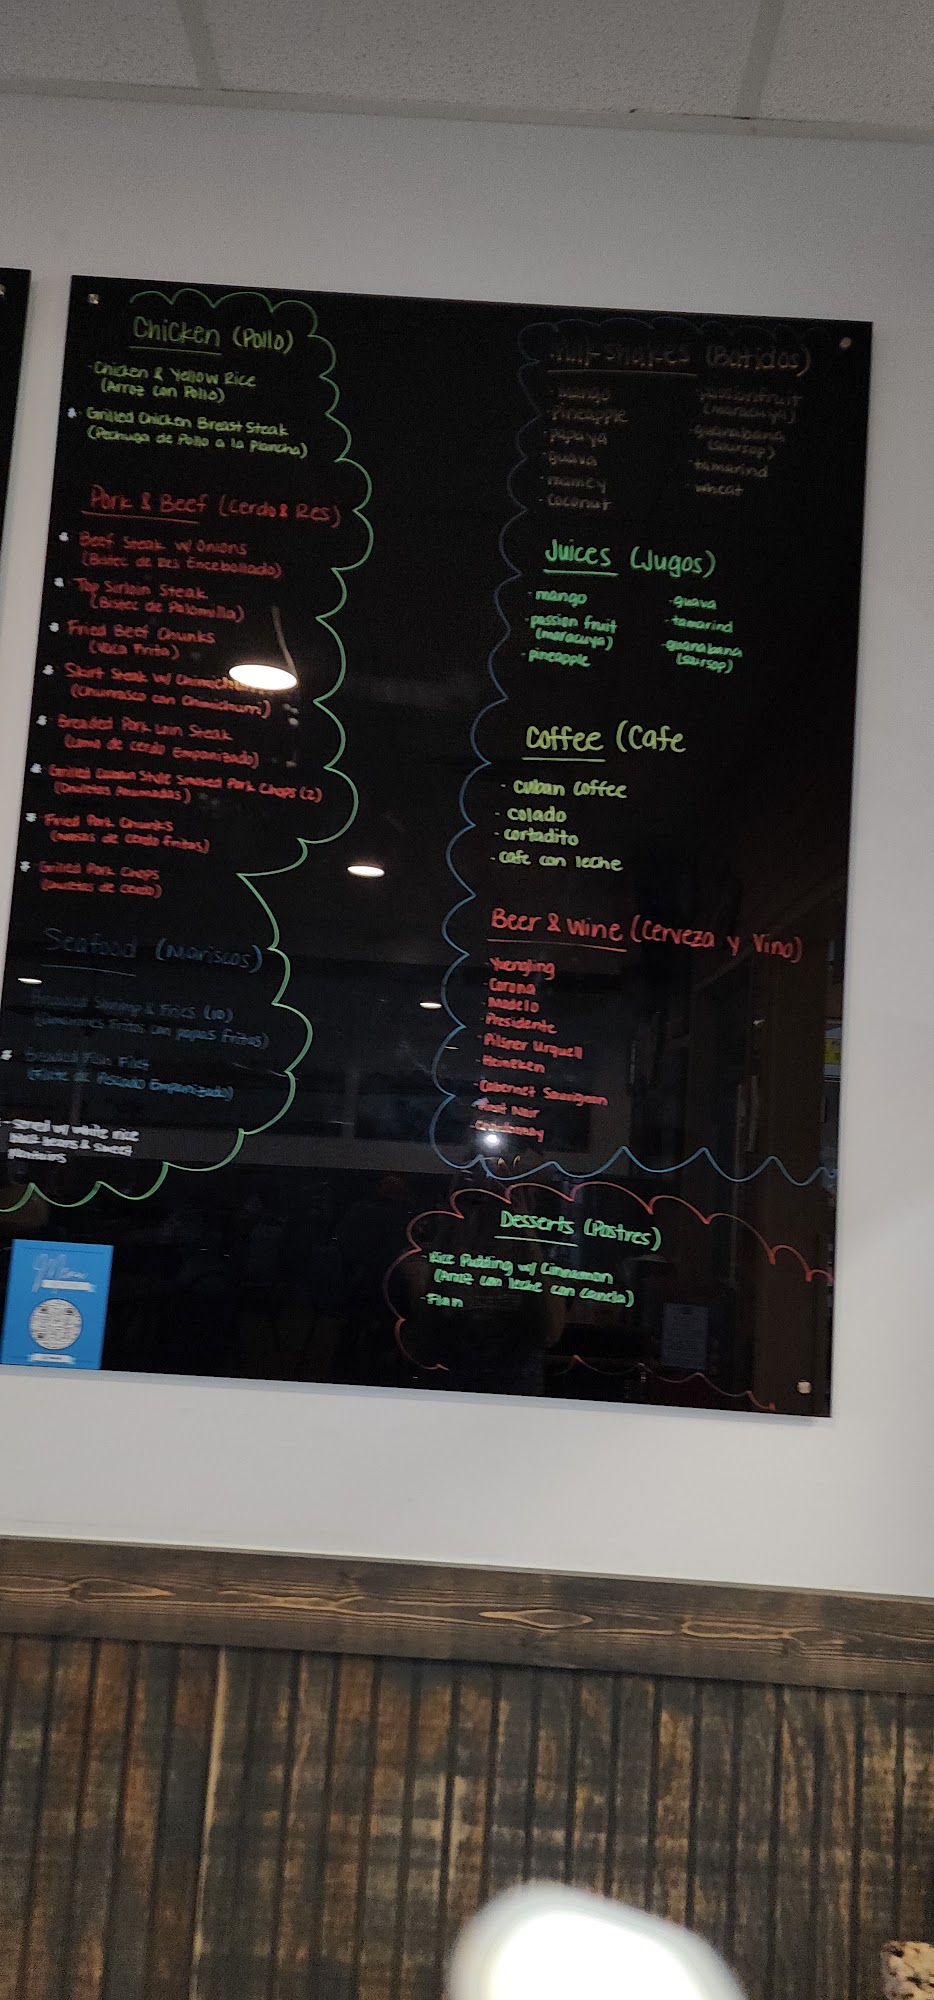 Chicken (Pollo)
- Chicken & Yellow Rice
(Arroz con Pollo)
* Grilled Chicken Breast Steak
(Pechuga de Pollo a la Plancha)
Pork & Beef (Cerdo & Res)
* Beef Steak w/ Onions
(Bistec de Res Encebollado)
* Top Sirloin Steak
(Bistec de Palomilla)
* Fried Beef Chunks
(Vaca Frita)
* Skirt Steak w/ Chimichurri
(Churrasco con Chimichurri)
* Breaded Pork Loin Steak
(Loma de cerdo Empanizado)
* Grilled Cuban Style Smoked Pork Chops (2)
(Chuletas Ahumadas)
* Fried Pork Chunks
(Masas de Cerdo Fritas)
* Grilled Pork Chops
(Chuletas de cerdo)
Seafood (Mariscos)
Breaded Shrimp & Fries (10)
(Camarones Fritos con papas Fritas)
* Breaded Fish Filet
(Filete de Pescado Empanizado)
- Served w/ white rice
black beans & sweet
plantains
Menu
Milkshakes (Batidos)
- mango
- pineapple
- papaya
- guava
- mamey
- coconut
- passionfruit
(maracuya)
- guanabana
(soursop)
- tamarind
- wheat
Juices (Jugos)
- mango
- passion fruit
(maracuya)
- pineapple
- guava
- tamarind
- guanabana
(soursop)
Coffee (Cafe
- Cuban Coffee
- colado
- cortadito
- cafe con leche
Beer & Wine (Cerveza y Vino)
- Yuengling
- Corona
- Modelo
- Presidente
- Pilsner Urquell
- Heineken
- Cabernet Sauvignon
- Pinot Noir
- Chardonnay
Desserts (Postres)
- Rice Pudding w/ Cinnamon
(Arroz con leche con canela)
- Flan